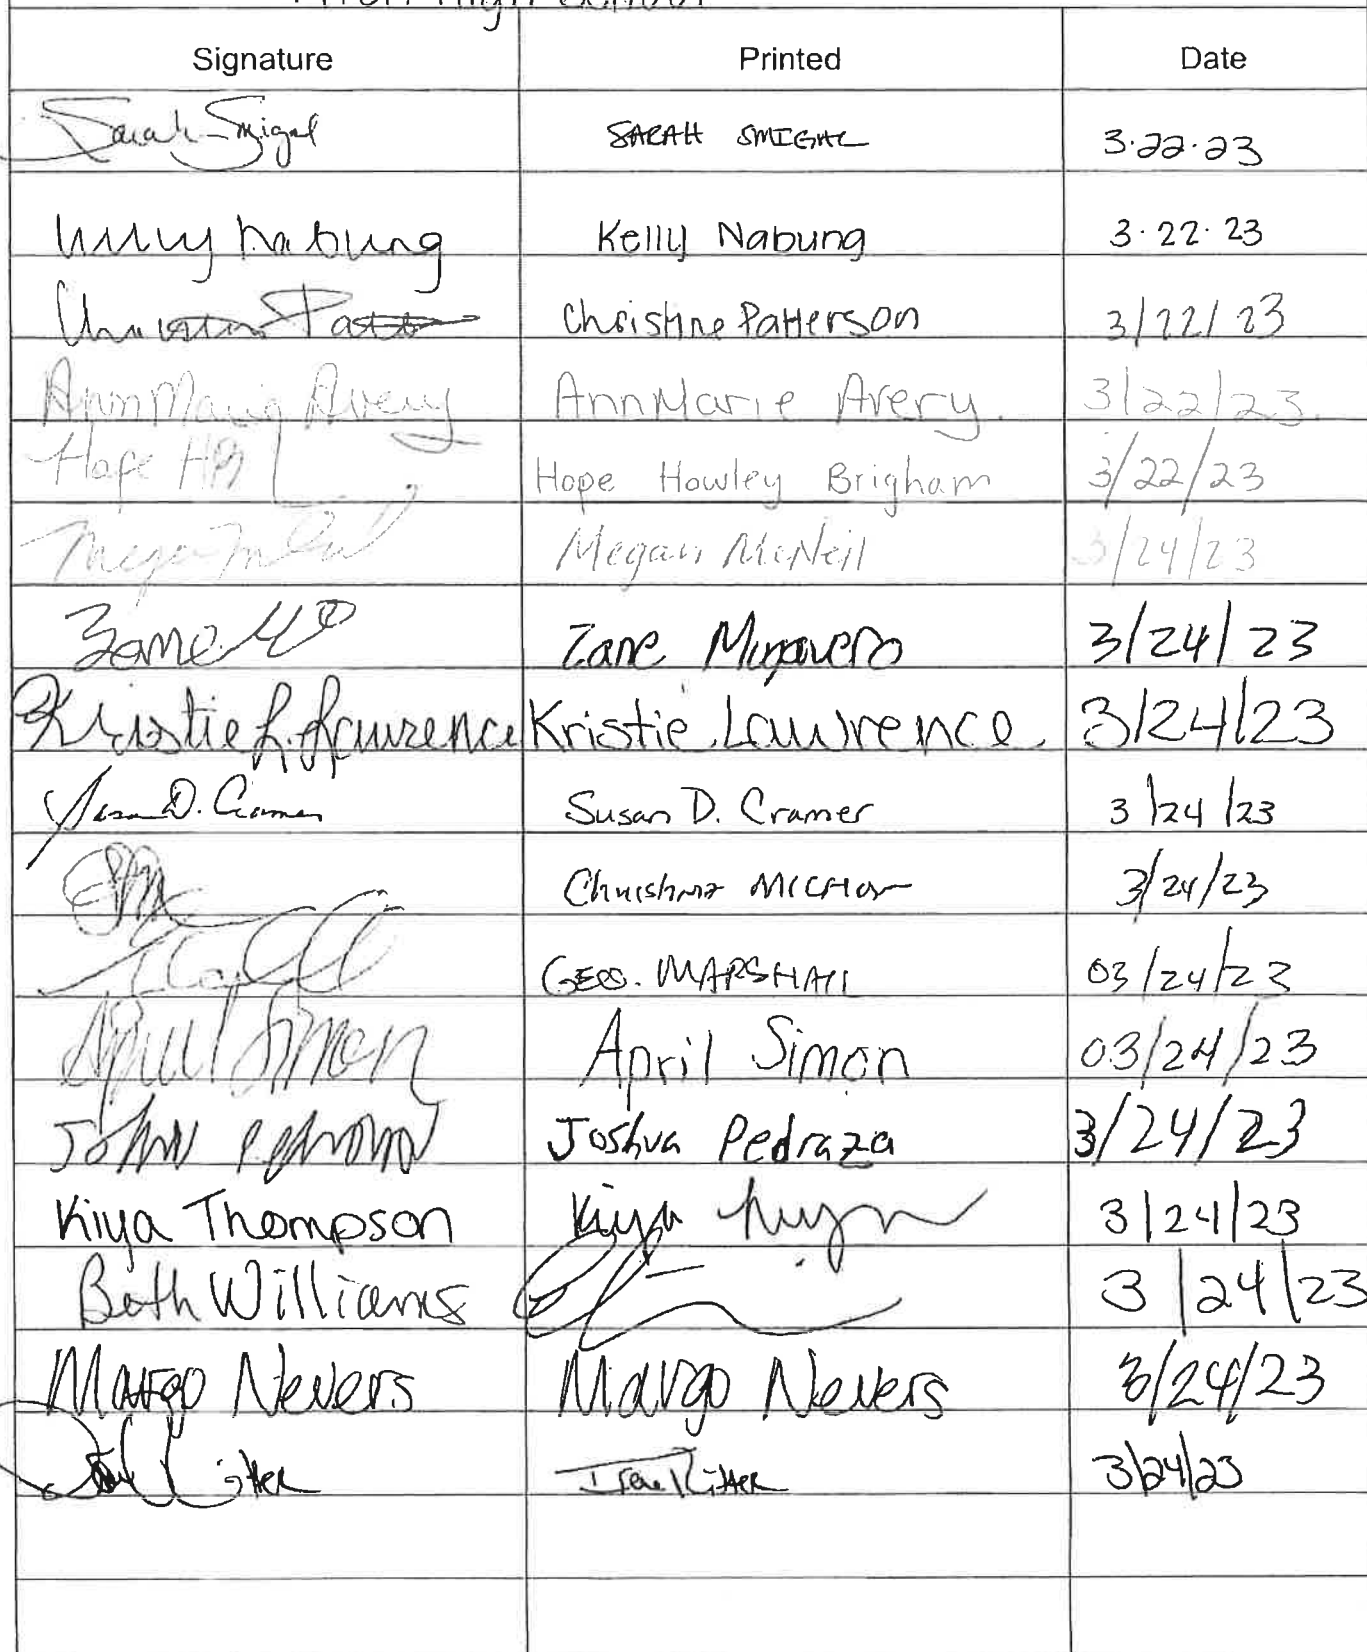 High School
Signature Printed Date
Sarah Smigal SARAH SMIGAL 3·22·23
Kelly Nabung Kelly Nabung 3·22·23
Christine Patterson 3/22/23
AnnMarie Avery AnnMarie Avery. 3/22/23.
Hope HB Hope Howley Brigham 3/22/23
Megan McNeil Megan McNeil 3/24/23
Zane Zane Migavero 3/24/23
Kristie L. Lawrence Kristie Lawrence 3/24/23
Susan D. Cramer Susan D. Cramer 3/24/23
3/24/23
GEO. MARSHALL 03/24/23
April Simon April Simon 03/24/23
Joshua Pedraza 3/24/23
Kiya Thompson Kiya 3/24/23
Beth Williams 3/24/23
Margo Nevers Margo Nevers 3/24/23
Ritter 3/24/23